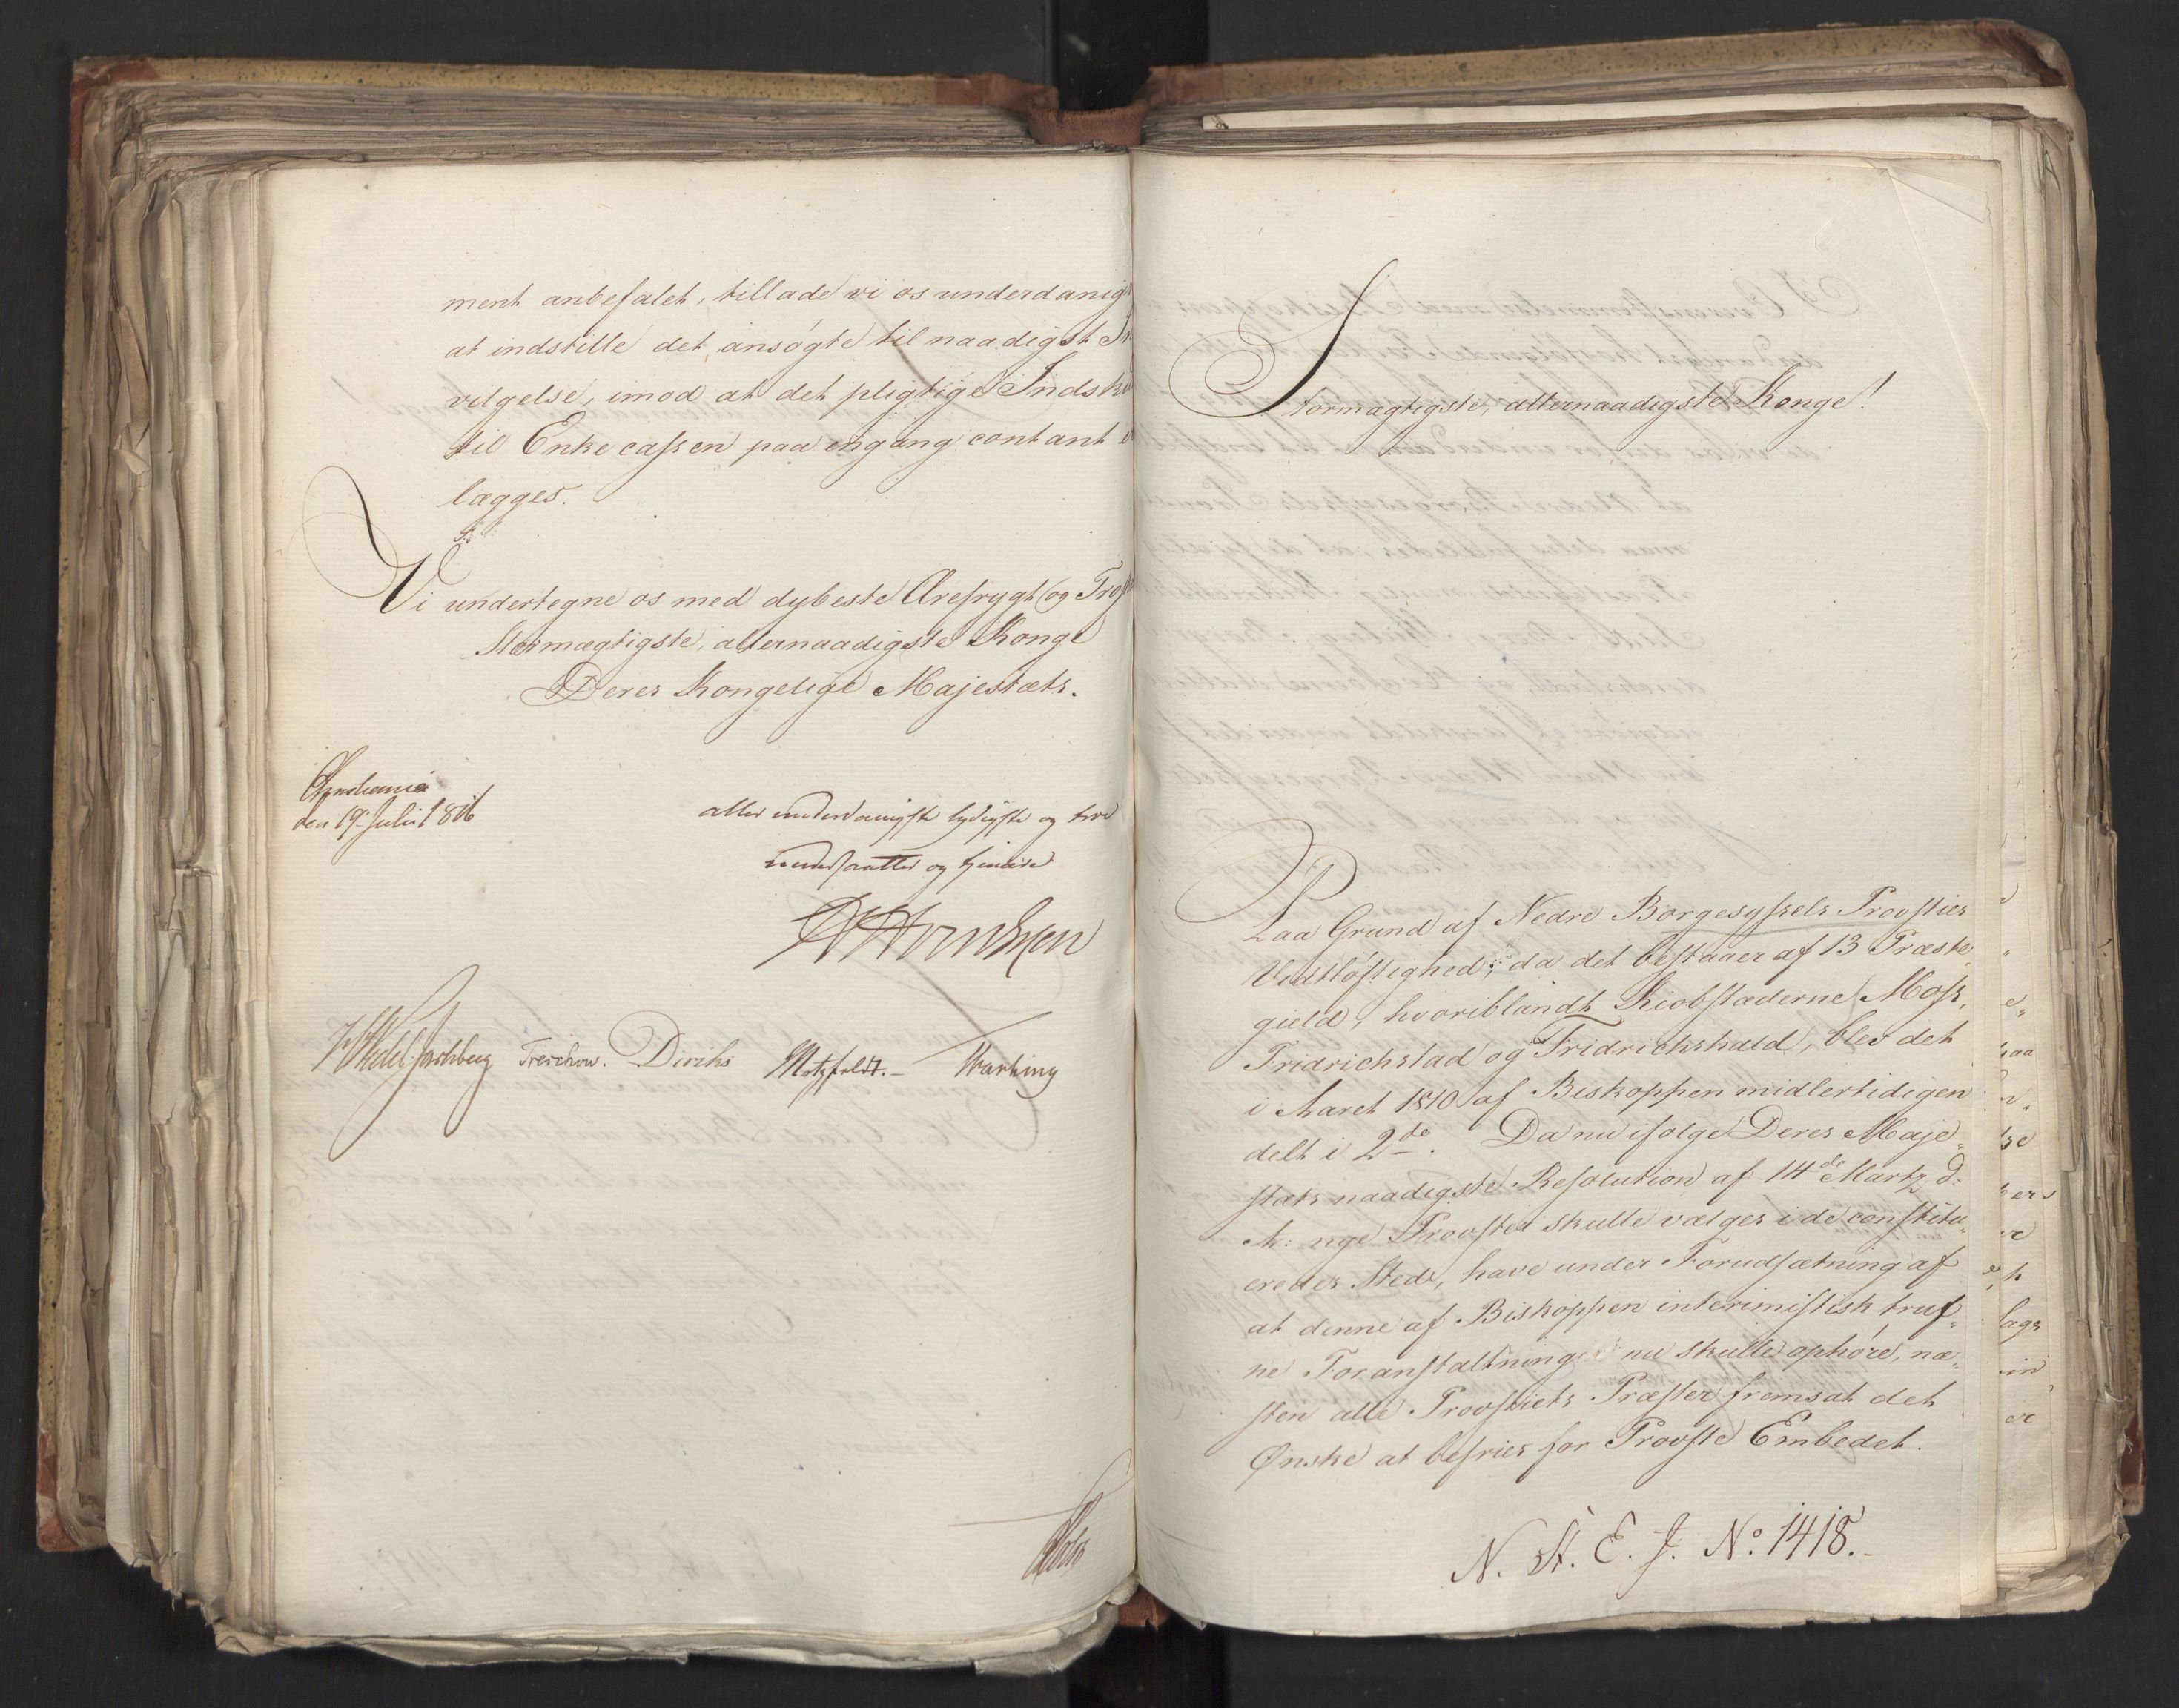 ment anbefalet, tillade vi os underdanig
at indstille det ansøgte til naadigst
vilgelse, imod at det pligtige Indsk
til Enkecassen paa engang contant
lægges.
Vi undertegne os med dybeste Ærefrygt og Tro
Stormægtigste, allernaadigste Konge
Deres Kongelige Majestæts.
Christiania
den 19 Juli 1816
aller underdanigste lydigste og troe
undersaatter og tjenere
M Sommerhielm
Wedel Jarlsberg Treschow. Diriks Motzfeldt. Hartwig
Stormægtigste, allernaadigste Konge!
Paa Grund af Nedre Borgesyssels Provsties
Vidtløftighed, da det bestaaer af 13 Præste
gield, hvoriblandt Kiøbstæderne Moss,
Fridrichstad og Fridrichshald, blev det
i Aaret 1810 af Biskoppen midlertidigen
delt i 2de. Da nu ifølge Deres Maje-
stæts naadigste Resolution af 14de Martz d:
A: nye Provster skulle vælges i de constitu-
eredes Sted, have under Forudsætning af
at denne af Biskoppen interimistisk truf-
ne Foranstaltning nu skulle ophøre, næ-
sten alle Provstiets Præster fremsat det
Ønske at befries for Provste Embedet.
N. K. E. J. No: 1418.